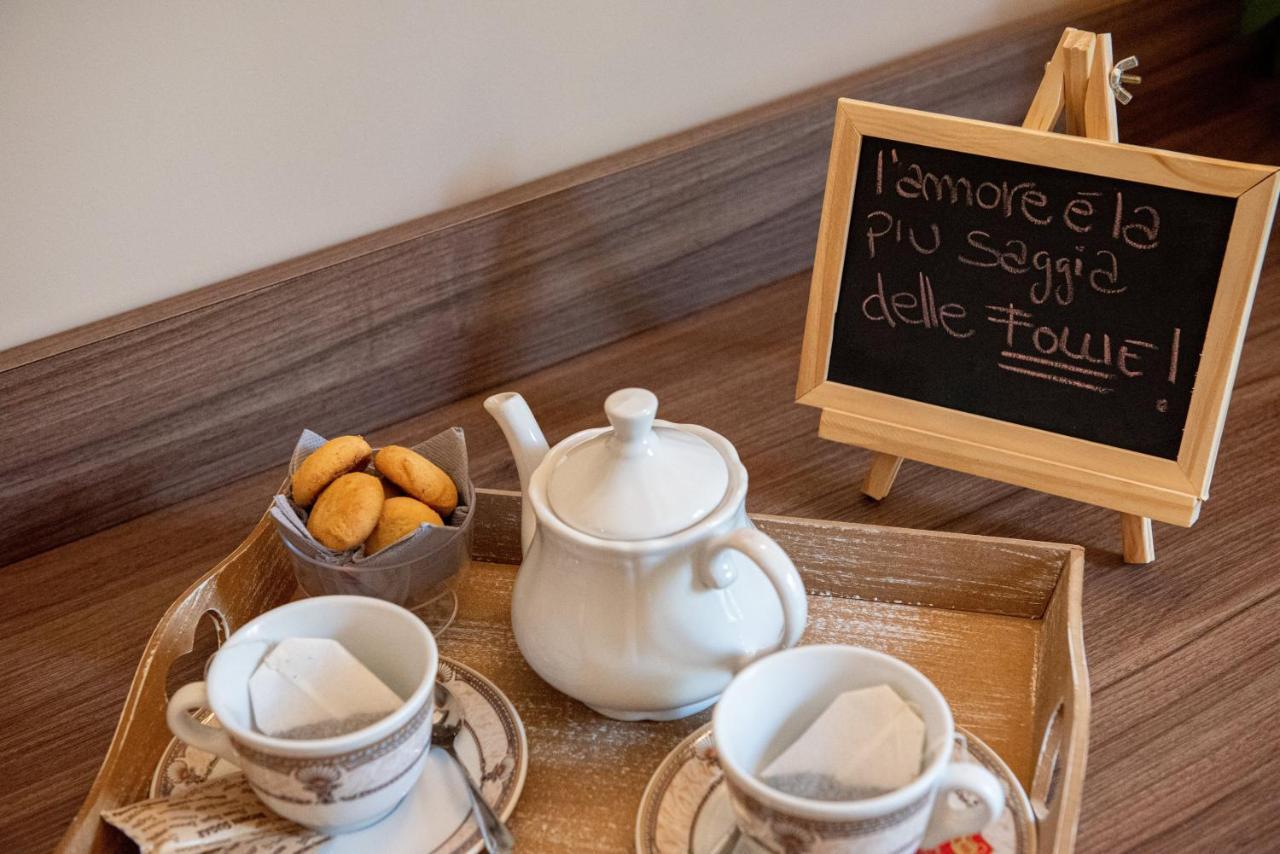 l'amore é la
più saggia
delle FOLLIE!